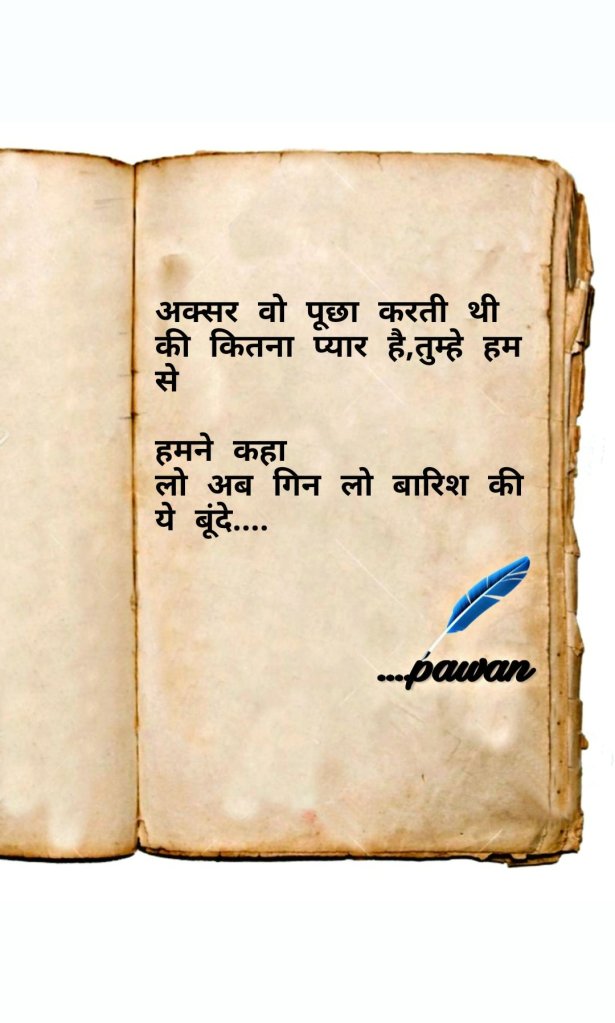 अक्सर वो पूछा करती थी
की कितना प्यार है,तुम्हे हम
से
हमने कहा
लो अब गिन लो बारिश की
ये बूंदे....
....pawan